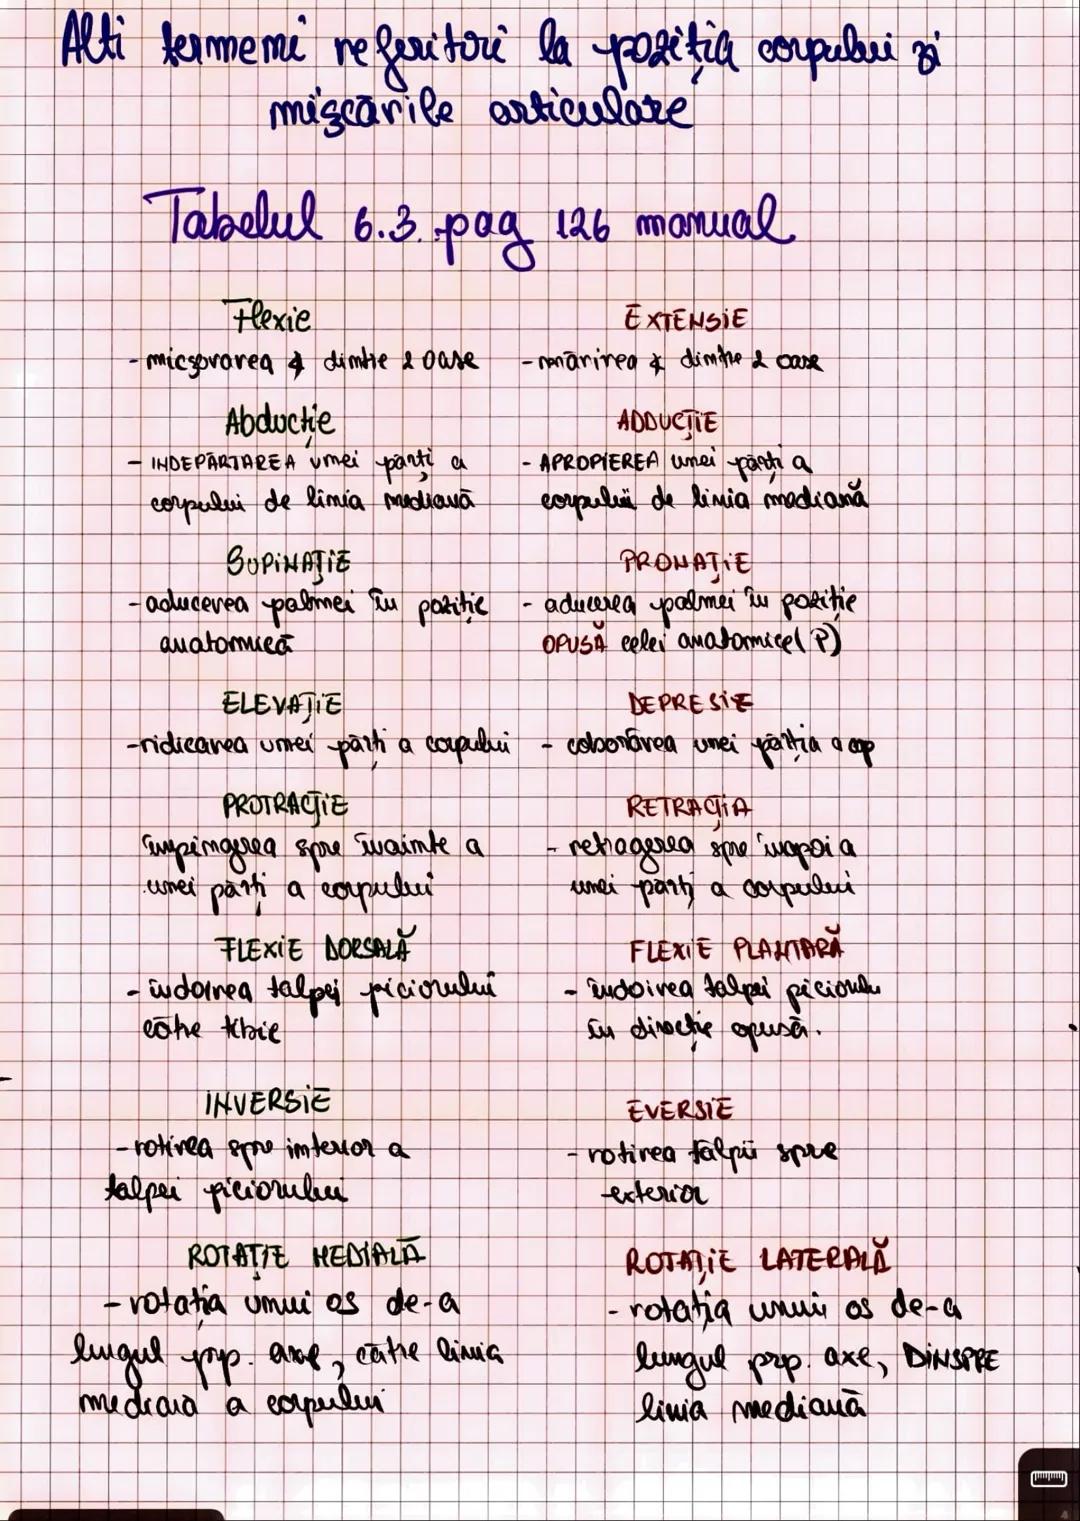 Alți termeni referitori la poziția corpului și
mișcările articulare
Tabelul 6.3. pag 126 manual
Flexie
- micșorarea ∡ dintre 2 oase
EXTENSIE
- mărirea ∡ dintre 2 oase
Abducție
- INDEPĂRTAREA unei părți a
corpului de linia mediană
ADDUCȚIE
- APROPIEREA unei părți a
corpului de linia mediană
SUPINAȚIE
- aducerea palmei în poziție
anatomică
PRONAȚIE
- aducerea palmei în poziție
OPUSĂ celei anatomice (P)
ELEVAȚIE
- ridicarea unei părți a corpului
DEPRESIE
- coborârea unei părția a cop
PROTRACȚIE
împingerea spre înainte a
unei părți a corpului
RETRACȚIA
- retragerea spre înapoi a
unei părți a corpului
FLEXIE DORSALĂ
- îndoirea talpei piciorului
către tibie
FLEXIE PLANTARĂ
- îndoirea talpei piciorulu
în direcție opusă.
INVERSIE
- rotirea spre interior a
talpei piciorului
EVERSIE
- rotirea tălpii spre
exterior
ROTAȚIE MEDIALĂ
- rotația unui os de-a
lungul prp. axe, către linia
mediana a corpului
ROTAȚIE LATERALĂ
- rotația unui os de-a
lungul prp. axe, DINSPRE
linia mediană
4